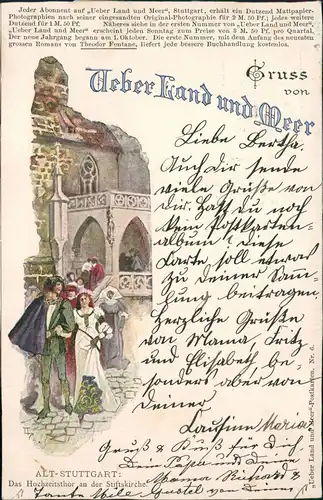 Jeder Abonnent auf „Ueber Land und Meer", Stuttgart, erhält ein Dutzend Mattpapier-
Photographien nach seiner eingesandten Original-Photographie für 2 M. 50 Pf.; jedes weitere
Dutzend für 1 M. 50 Pf. Näheres siehe in der ersten Nummer von „Ueber Land und Meer".
„Ueber Land und Meer" erscheint jeden Sonntag zum Preise von 3 M. 50 Pf. pro Quartal.
Der neue Jahrgang begann am 1. Oktober. Die erste Nummer, mit dem Anfang des neuesten
grossen Romans von Theodor Fontane, liefert jede bessere Buchhandlung kostenlos.
Gruss
von
Ueber Land und Meer
Liebe Bertha.
Auch Dir sende
viele Grüße von
Dir. Hast du noch
kein Postkarten-
album? Diese
Karte soll etwas
zu deiner Samm-
lung beitragen.
Herzliche Grüße
von Mama, Fritz
und Elisabeth be-
sonders aber von
deiner
Cousine Maria
Gruß & Kuß für Dich
Dein Papa und Dein
Mama Richard &
Tante
Gustel von
ALT-STUTTGART:
Das Hochzeitsthor an der Stiftskirche
„Ueber Land und Meer"-Postkarten. Nr. 6.